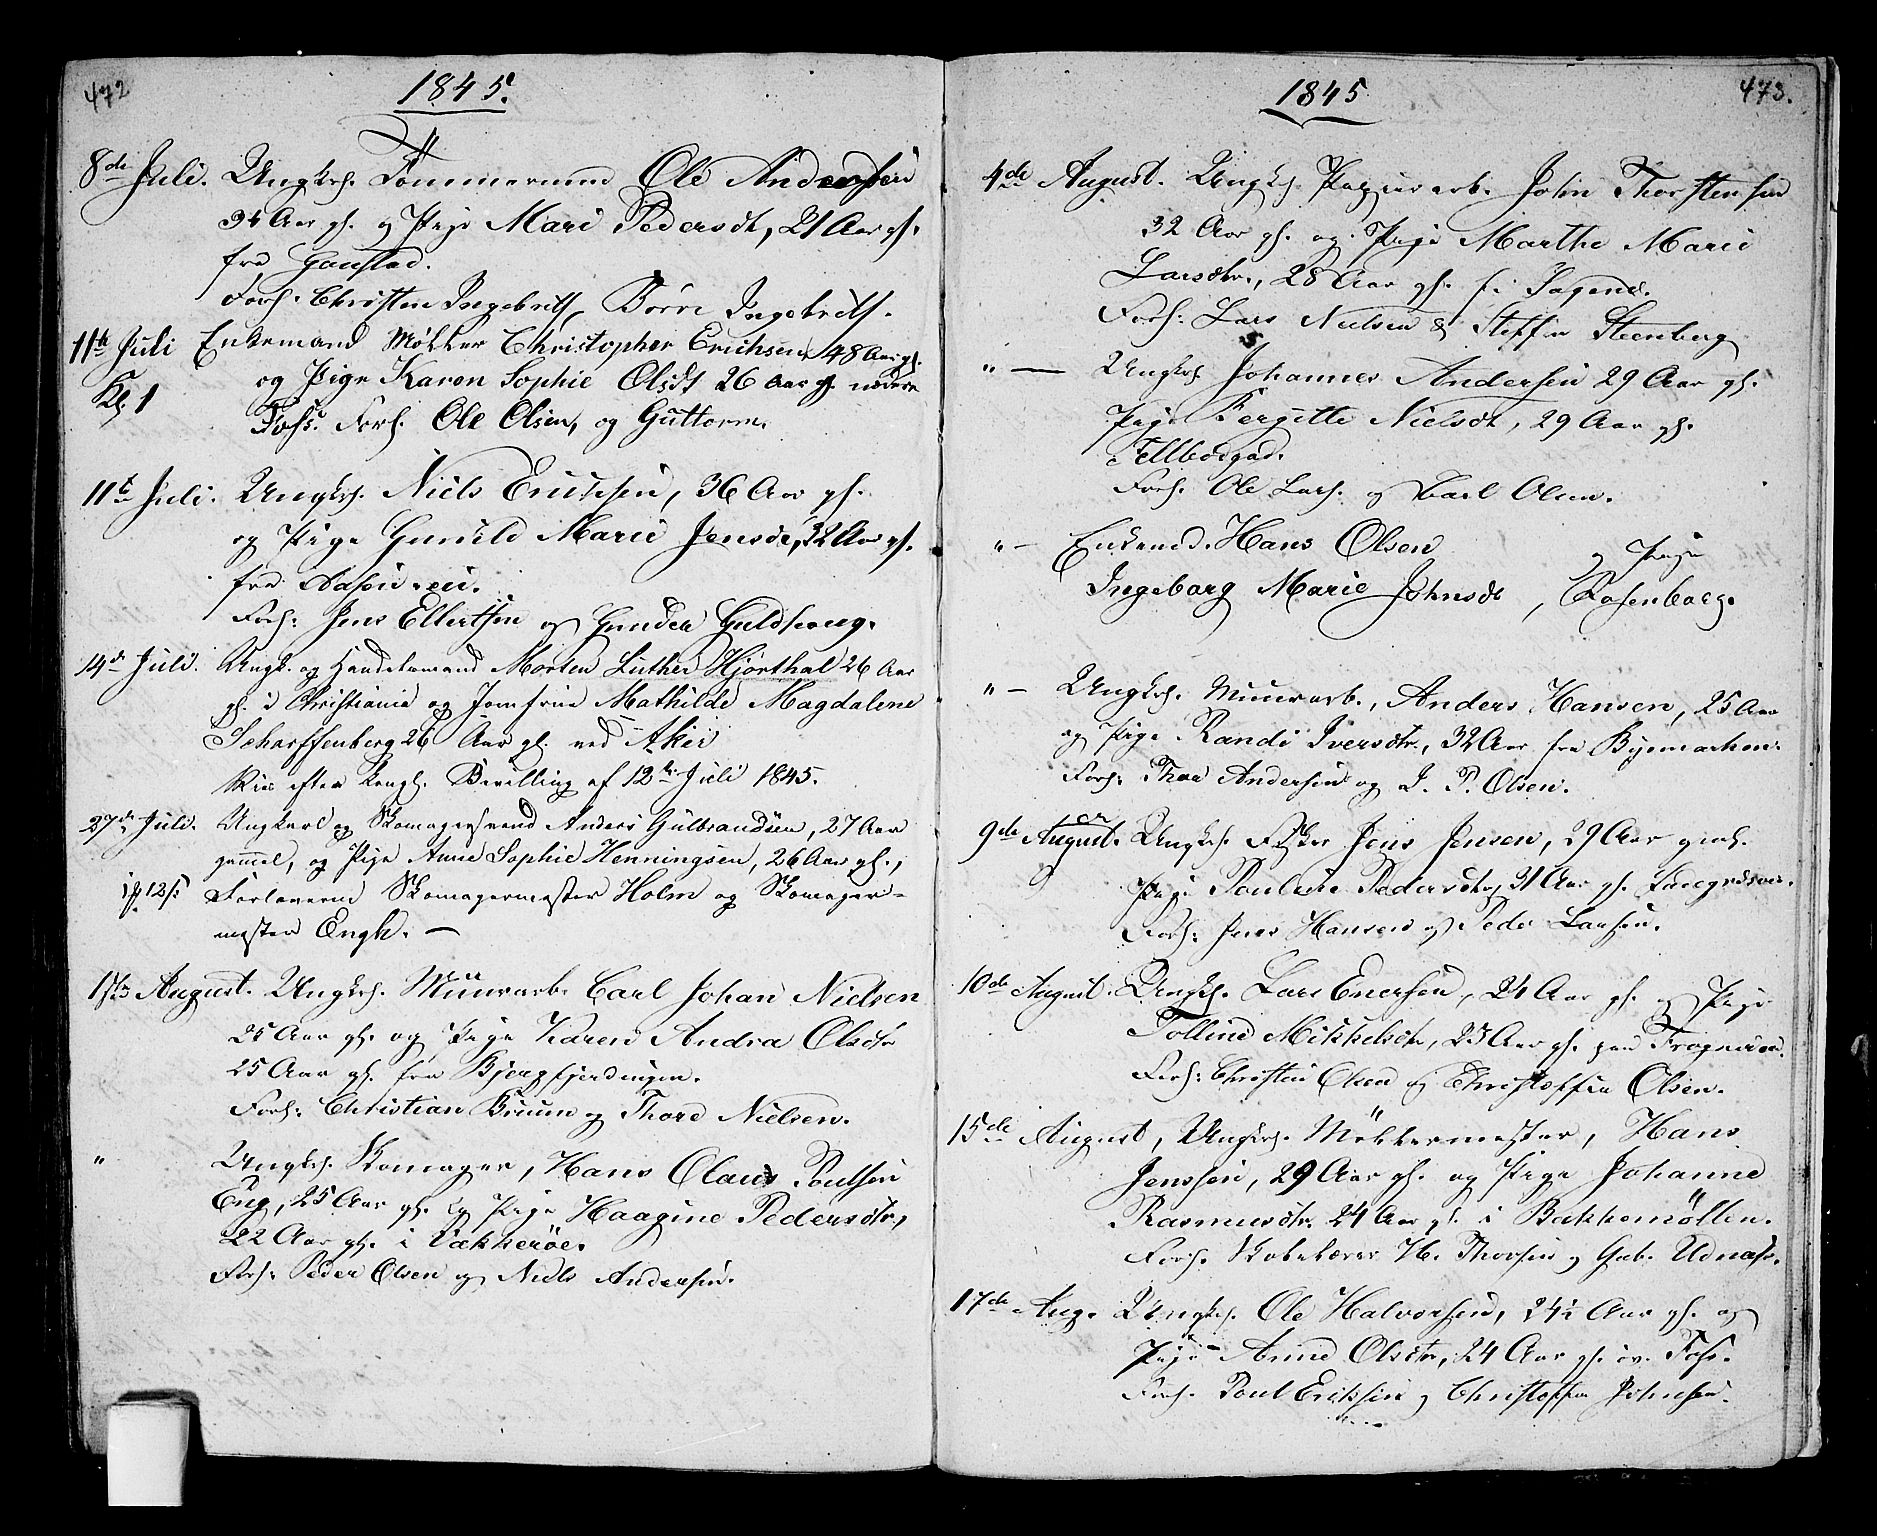 472
1845.
8de Juli. Ungkrl. Tömmermand Ole Andersen
34 Aar gl. og Pige Mari Pedersdt, 21 Aar gl.
fra Gaustad.
Forl. Christen Ingebrits, Börre Ingebrits.
11te Juli Enkemand Møller Christopher Erichsen 48 Aar gl.
Kl. 1 og Pige Karen Sophie Olsdt 26 Aar gl. nedre
Foss. Forl. Ole Olsen, og Guttorm.
11te Juli. Ungkrl. Niels Erichsen, 36 Aar gl.
og Pige Gunild Marie Jensdt, 32 Aar gl.
fra
Forl: Jens Ellertsen og Gunder Guldhaug.
14de Juli. Ungk. og Handelsmand Morten Luther Hjorthal 26 Aar
gl. i Christiania og Jomfrue Mathilde Magdalene
Scharffenberg 26 Aar gl. ved Aker
efter kongl. Bevilling af 12te Juli 1845.
27de Juli. Ungkarl og Skomagersvend Anders Gulbrandsen, 27 Aar
gammel, og Pige Anne Sophie Henningsen, 26 Aar gl.,
Forloverne Skomagermester Holm og Skomager-
mester Engh. —
August. Ungkrl. Muurarb. Carl Johan Nielsen
25 Aar gl. og Pige Karen Andrea Olsdtr
25 Aar gl. fra Bjergfjerdingen.
Forl: Christian Bruun og Thore Nielsen.
" Ungkrl. Skomager, Hans Olaus Poulsen
Eng, 25 Aar gl. og Pige Haagine Pedersdtr,
22 Aar gl. i Vækkerøe.
Forl: Peder Olsen og Niels Andersen.
473.
1845
4de August. Ungkrl. Papirarb. John Thorstensen
32 Aar gl. og Pige Marthe Marie
Larsdtr., 28 Aar gl. fr Sagene.
Forl: Lars Nielsen & Steffen Steenberg
" — Ungkrl Johannes Andersen 29 Aar gl.
Pige Bergitte Nielsdt, 29 Aar gl.
Forl. Ole Lars. og Carl Olsen.
" — Enkemd. Hans Olsen og Pige
Ingeborg Marie Johnsdt, Rosenborg.
" — Ungkrl. Muurarb., Anders Hansen, 25 Aar
og Pige Randi Iversdtr., 32 Aar fra Byemarken.
Forl: Thor Andersen og I. P. Olsen.
9de August. Ungkrl. Fisker Jens Jensen, 29 Aar gml.
Pige Pauline Pedersdtr, 31 Aar gl.
Forl: Jens Hansen og Peder Larsen.
10de August. Ungkrl. Lars Enersen, 24 Aar gl. og Pige
Polline Mikkelsdtr, 23 Aar gl. paa Frogner
Forl: Christen Olsen og Christoffer Olsen.
15de August, Ungkrl. Møllermester, Hans
Jenssen, 29 Aar gl. og Pige Johanne
Rasmusdtr. 24 Aar gl. i Bakkemøllen.
Forl. Skolelærer H. Thorsen og Gab. Udnæs.
17de Aug. Ungkrl. Ole Halvorsen, 24½ Aar gl. og
Pige Anne Olsdtr, 24 Aar gl. öv. Foss.
Forl. Poul Eriksen og Christoffer Johnsen.